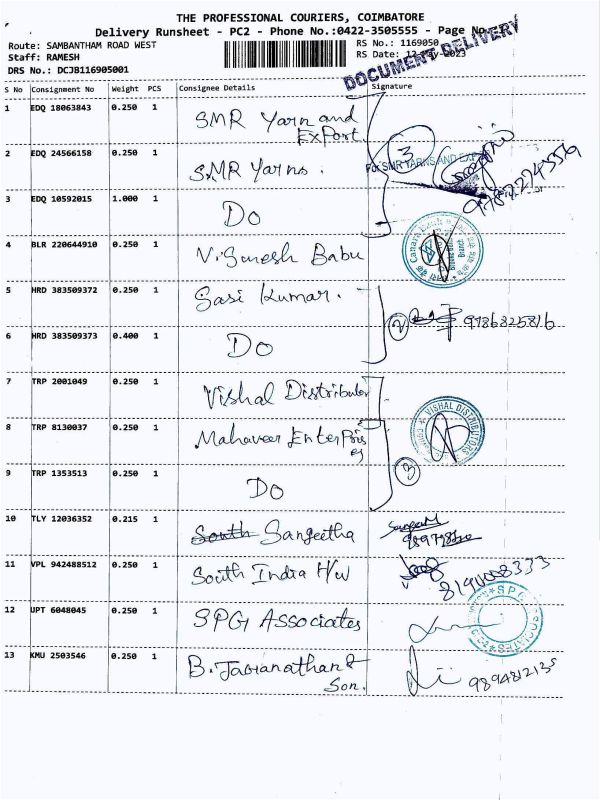 THE PROFESSIONAL COURIERS, COIMBATORE
Delivery Runsheet - PC2 - Phone No.:0422-3505555 - Page No.:
Route: SAMBANTHAM ROAD WEST
RS No.: 1169050
Staff: RAMESH
RS Date: 12-May-2023
DRS No.: DCJB116905001
DOCUMENT DELIVERY
S No Consignment No Weight PCS Consignee Details Signature
1 EDQ 18063843 0.250 1 SMR Yarn and
Export
2 EDQ 24566158 0.250 1 SMR Yarns.
3
For SMR YARNS AND EXPORT
3 EDQ 10592015 1.000 1 Do
4 BLR 220644910 0.250 1 V. Ganesh Babu
Canara Bank
5 HRD 383509372 0.250 1 Sasi Kumar.
2 9786825816
6 HRD 383509373 0.400 1 Do
7 TRP 2001049 0.250 1 Vishal Distributor
VISHAL DISTRIBUTORS
8 TRP 8130037 0.250 1 Mahaveer Enterpris
es
3
9 TRP 1353513 0.250 1 Do
10 TLY 12036352 0.215 1 South Sangeetha
11 VPL 942488512 0.250 1 South India H/W
8190008333
12 UPT 6048045 0.250 1 SPG Associates
SPG ASSOCIATES
13 KMU 2503546 0.250 1 B. Jaganathan &
Son.
9894812135